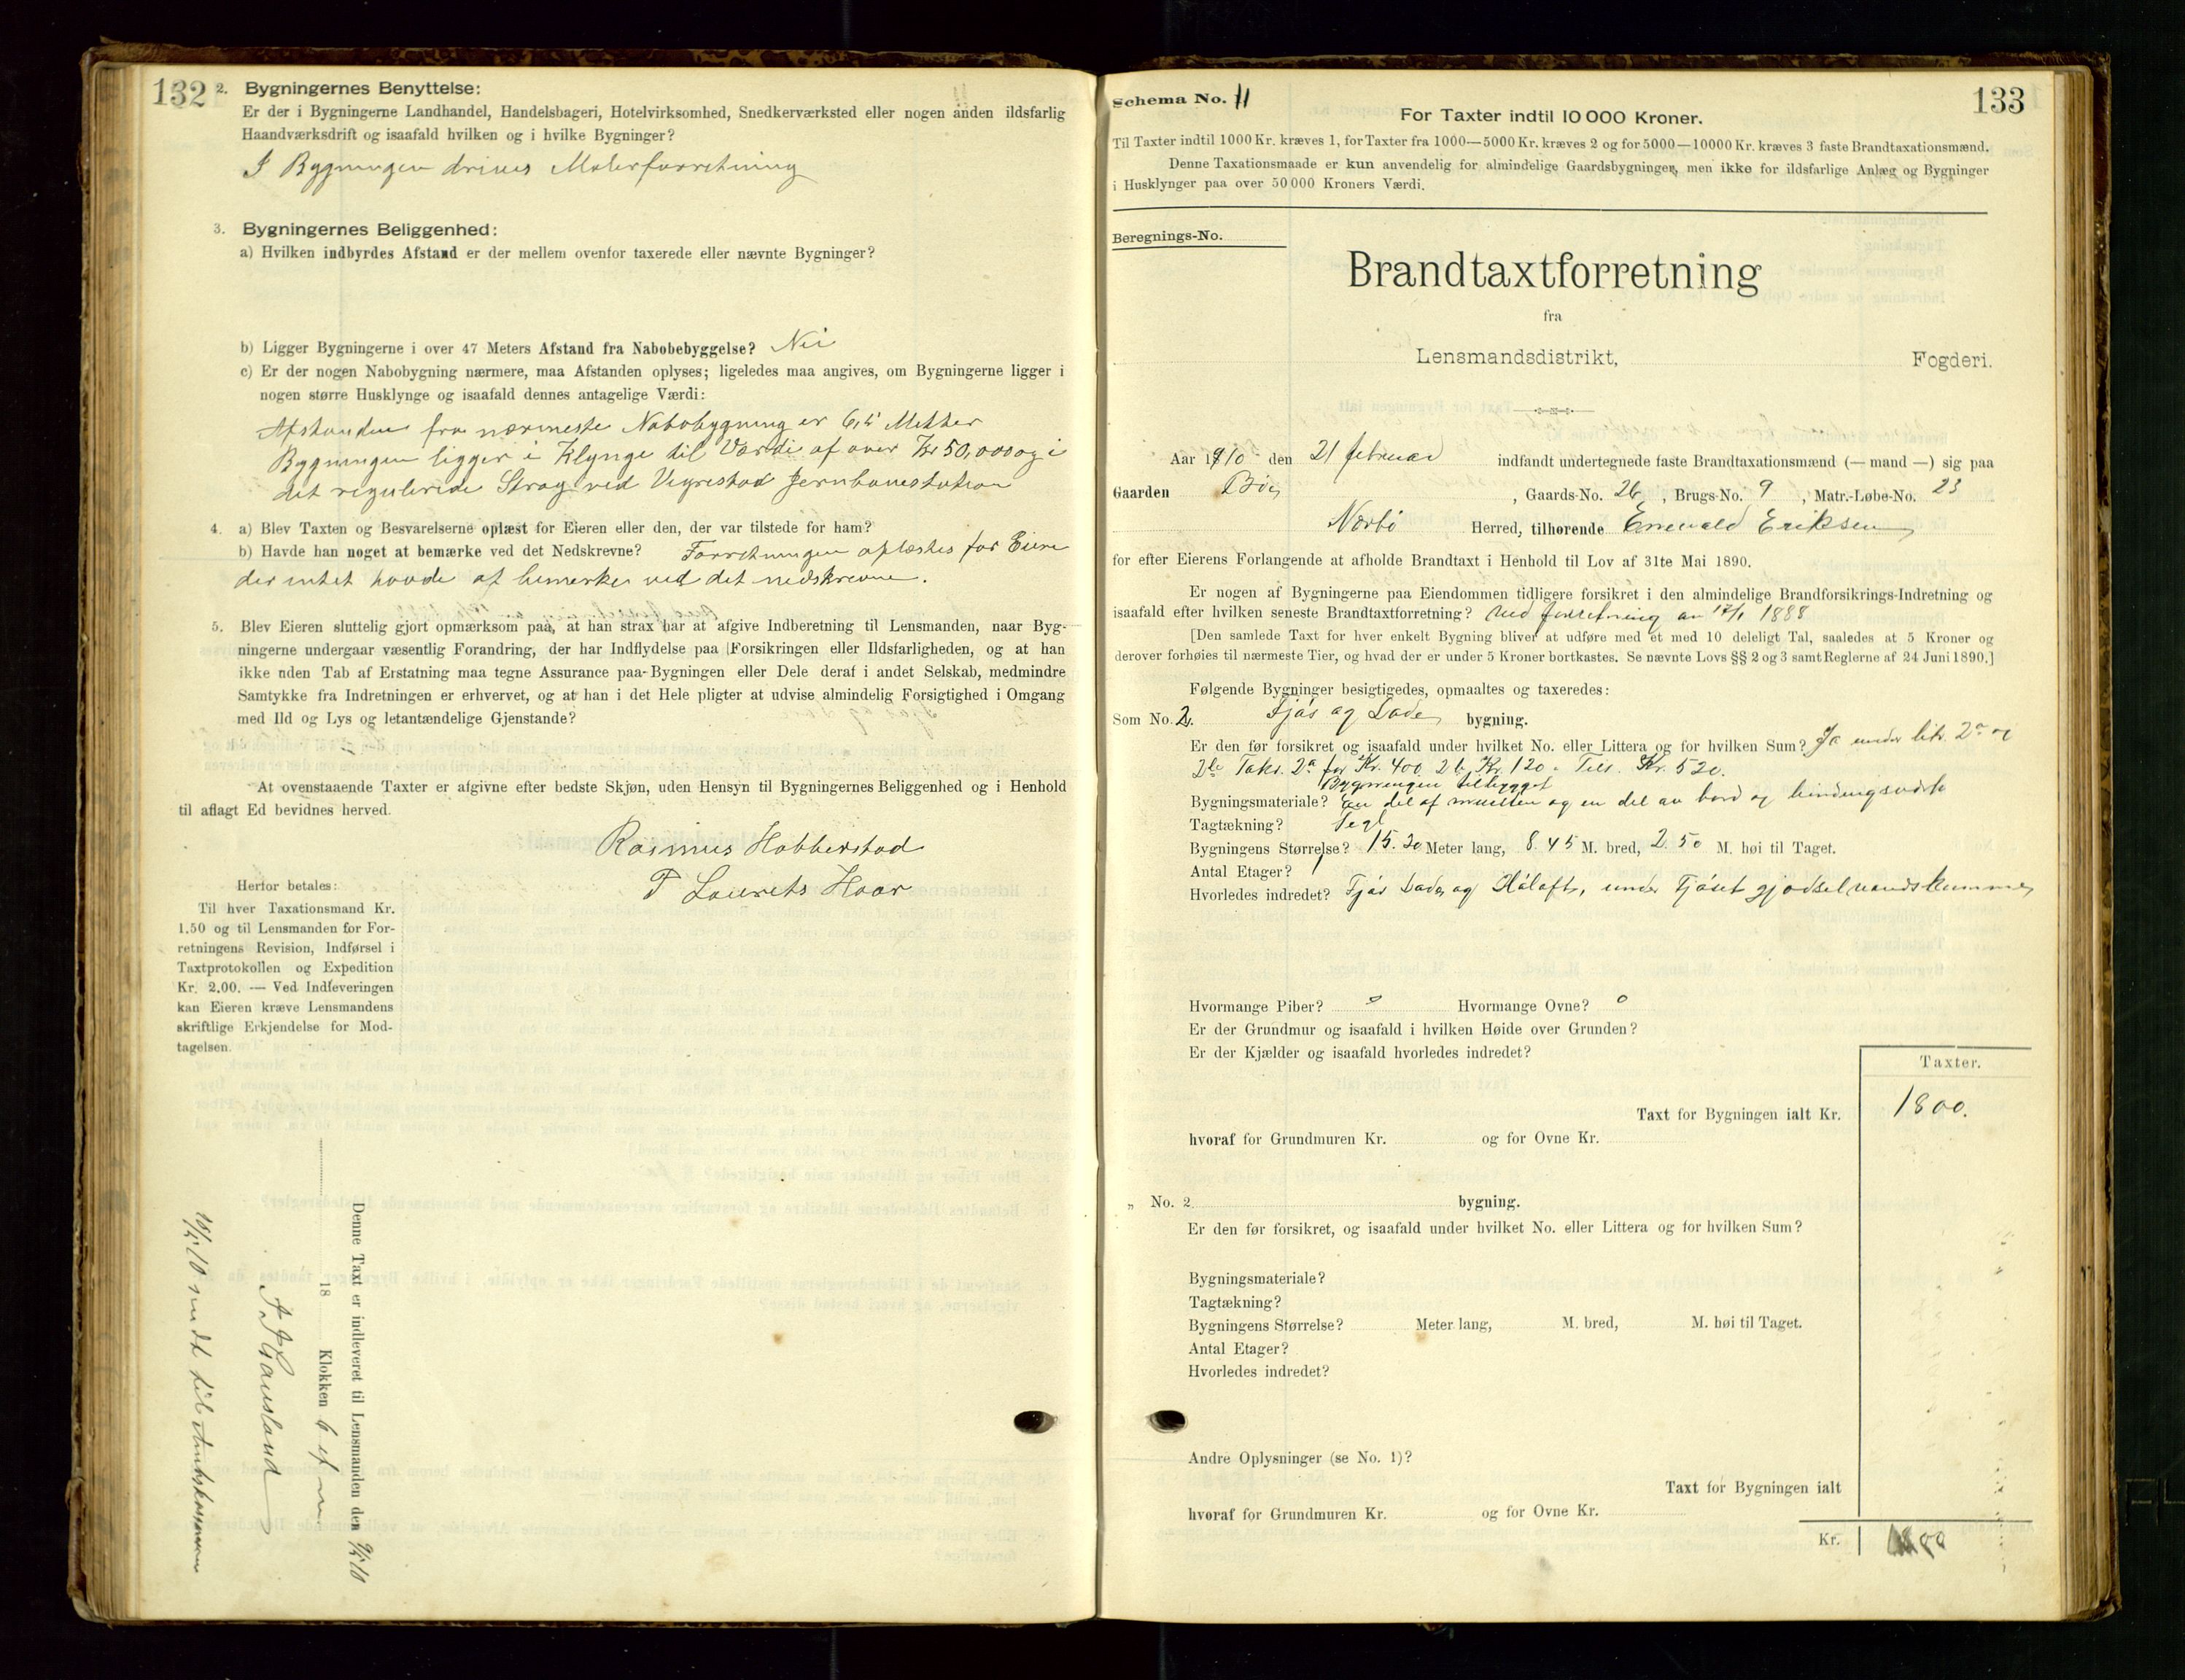 132
2. Bygningernes Benyttelse:
Er der i Bygningerne Landhandel, Handelsbageri, Hotelvirksomhed, Snedkerværksted eller nogen anden ildsfarlig
Haandværksdrift og isaafald hvilken og i hvilke Bygninger?
I Bygningen drives Malerforretning
3. Bygningernes Beliggenhed:
a) Hvilken indbyrdes Afstand er der mellem ovenfor taxerede eller nævnte Bygninger?
b) Ligger Bygningerne i over 47 Meters Afstand fra Nabobebyggelse? Nei
c) Er der nogen Nabobygning nærmere, maa Afstanden oplyses; ligeledes maa angives, om Bygningerne ligger i
nogen større Husklynge og isaafald dennes antagelige Værdi:
Afstanden fra nærmeste Nabobygning er Metter
Bygningen ligger i Klynge til Værdi af over Kr 50,000 og i
det regulerede Strøg ved Vigrestad Jernbanestation
4. a) Blev Taxten og Besvarelserne oplæst for Eieren eller den, der var tilstede for ham?
b) Havde han noget at bemærke ved det Nedskrevne? Forretningen oplæstes for Eieren
der intet havde at bemerke ved det nedskrevne.
5. Blev Eieren sluttelig gjort opmærksom paa, at han strax har at afgive Indberetning til Lensmanden, naar Byg-
ningerne undergaar væsentlig Forandring, der har Indflydelse paa Forsikringen eller Ildsfarligheden, og at han
ikke uden Tab af Erstatning maa tegne Assurance paa Bygningen eller Dele deraf i andet Selskab, medmindre
Samtykke fra Indretningen er erhvervet, og at han i det Hele pligter at udvise almindelig Forsigtighed i Omgang
med Ild og Lys og letantændelige Gjenstande?
At ovenstaaende Taxter er afgivne efter bedste Skjøn, uden Hensyn til Bygningernes Beliggenhed og i Henhold
til aflagt Ed bevidnes herved.
Rasmus Hobberstad
T Laurets Haar
Herfor betales:
Til hver Taxationsmand Kr.
1.50 og til Lensmanden for For-
retningens Revision, Indførsel i
Taxtprotokollen og Expedition
Kr. 2.00. — Ved Indleveringen
kan Eieren kræve Lensmandens
skriftlige Erkjendelse for Mod-
tagelsen.
Denne Taxt er indleveret til Lensmanden den
18 Klokken 6 ef m
sendt til Amtskassereren
133
Schema No. 11
For Taxter indtil 10 000 Kroner.
Til Taxter indtil 1000 Kr. kræves 1, for Taxter fra 1000—5000 Kr. kræves 2 og for 5000—10000 Kr. kræves 3 faste Brandtaxationsmænd.
Denne Taxationsmaade er kun anvendelig for almindelige Gaardsbygninger, men ikke for ildsfarlige Anlæg og Bygninger
i Husklynger paa over 50 000 Kroners Værdi.
Beregnings-No.
Brandtaxtforretning
fra
Lensmandsdistrikt, Fogderi.
Aar 1910 den 21 februar indfandt undertegnede faste Brandtaxationsmænd (— mand —) sig paa
Gaarden Bø, Gaards-No. 26, Brugs-No. 9, Matr.-Løbe-No. 23
Nærbø Herred, tilhørende Enevald Eriksen
for efter Eierens Forlangende at afholde Brandtaxt i Henhold til Lov af 31te Mai 1890.
Er nogen af Bygningerne paa Eiendommen tidligere forsikret i den almindelige Brandforsikrings-Indretning og
isaafald efter hvilken seneste Brandtaxtforretning? ved forretning av 17/1 1888
[Den samlede Taxt for hver enkelt Bygning bliver at udføre med et med 10 deleligt Tal, saaledes at 5 Kroner og
derover forhøies til nærmeste Tier, og hvad der er under 5 Kroner bortkastes. Se nævnte Lovs §§ 2 og 3 samt Reglerne af 24 Juni 1890.]
Følgende Bygninger besigtigedes, opmaaltes og taxeredes:
Som No. 2. Fjøs og Lade bygning.
Er den før forsikret og isaafald under hvilket No. eller Littera og for hvilken Sum? Ja under litr 2a og
2b Takst. 2a for Kr. 400 2b Kr. 120. Tils. Kr. 520.
Bygningen tilbygget
Bygningsmateriale? En del af mursten og en del av bord og bindingsverk
Tagtækning? Tegl
Bygningens Størrelse? 15.20 Meter lang, 8.45 M. bred, 2.50 M. høi til Taget.
Antal Etager? 1
Hvorledes indredet? Fjøs Lade og Høloft, under Fjøset gjødselvandskumme
Hvormange Piber? 0 Hvormange Ovne? 0
Er der Grundmur og isaafald i hvilken Høide over Grunden?
Er der Kjælder og isaafald hvorledes indredet?
Taxter.
Taxt for Bygningen ialt Kr. 1800.
hvoraf for Grundmuren Kr. og for Ovne Kr.
„ No. 2. bygning.
Er den før forsikret, og isaafald under hvilket No. eller Littera og for hvilken Sum?
Bygningsmateriale?
Tagtækning?
Bygningens Størrelse? Meter lang, M. bred, M. høi til Taget.
Antal Etager?
Hvorledes indredet?
Andre Oplysninger (se No. 1)?
Taxt for Bygningen ialt
hvoraf for Grundmuren Kr. og for Ovne Kr.
Kr.